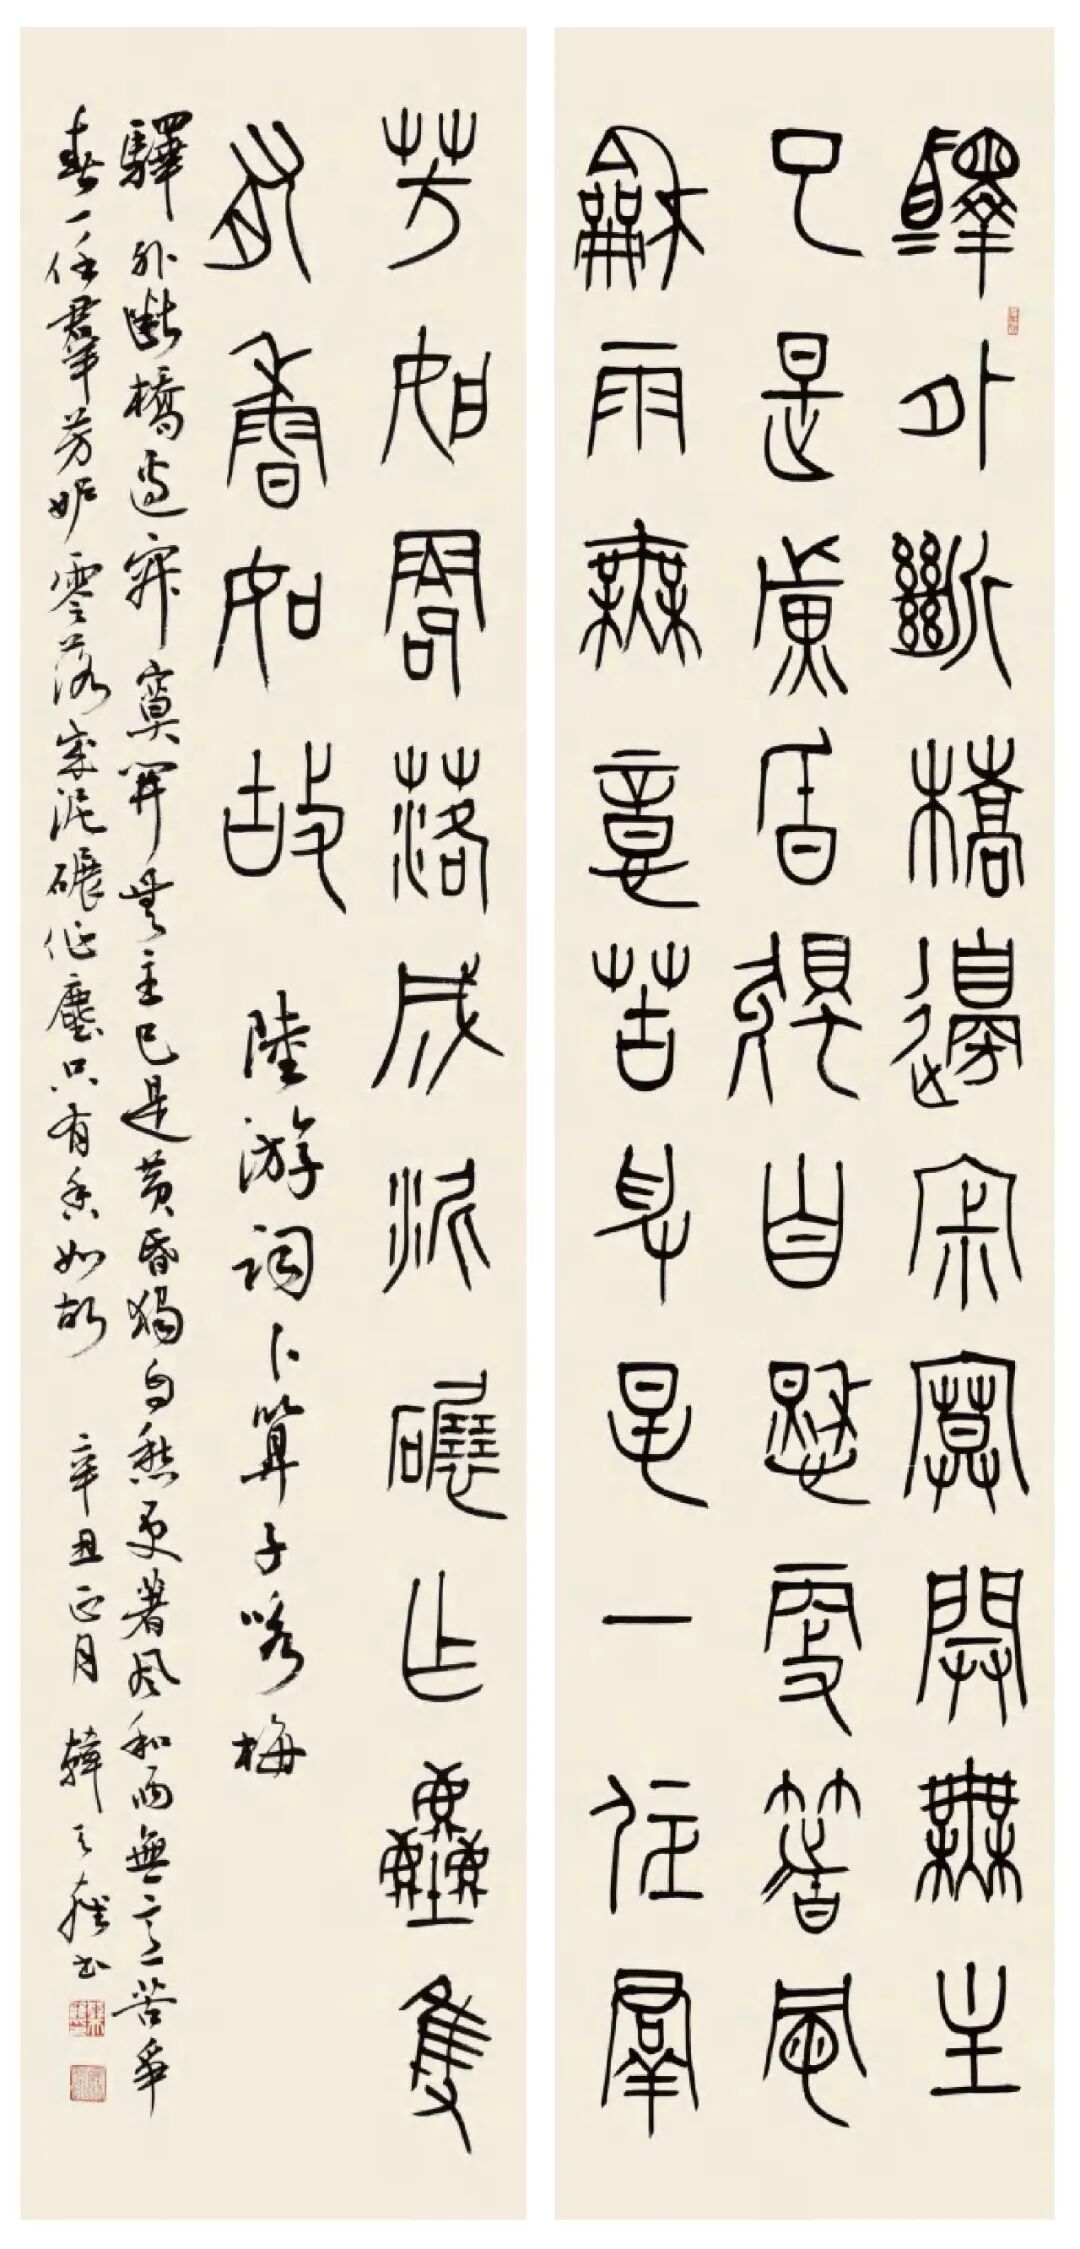 驛外斷橋邊寂寞開無主
已是黃昏獨自愁更著風
龢雨無意苦爭春一任群
芳妒零落成泥碾作塵隻
有香如故
陸游詞卜算子咏梅
驛外斷橋邊寂寞開無主已是黃昏獨自愁更著風和雨無意苦爭
春一任羣芳妒零落成泥碾作塵只有香如故 辛丑正月 韓天雍書